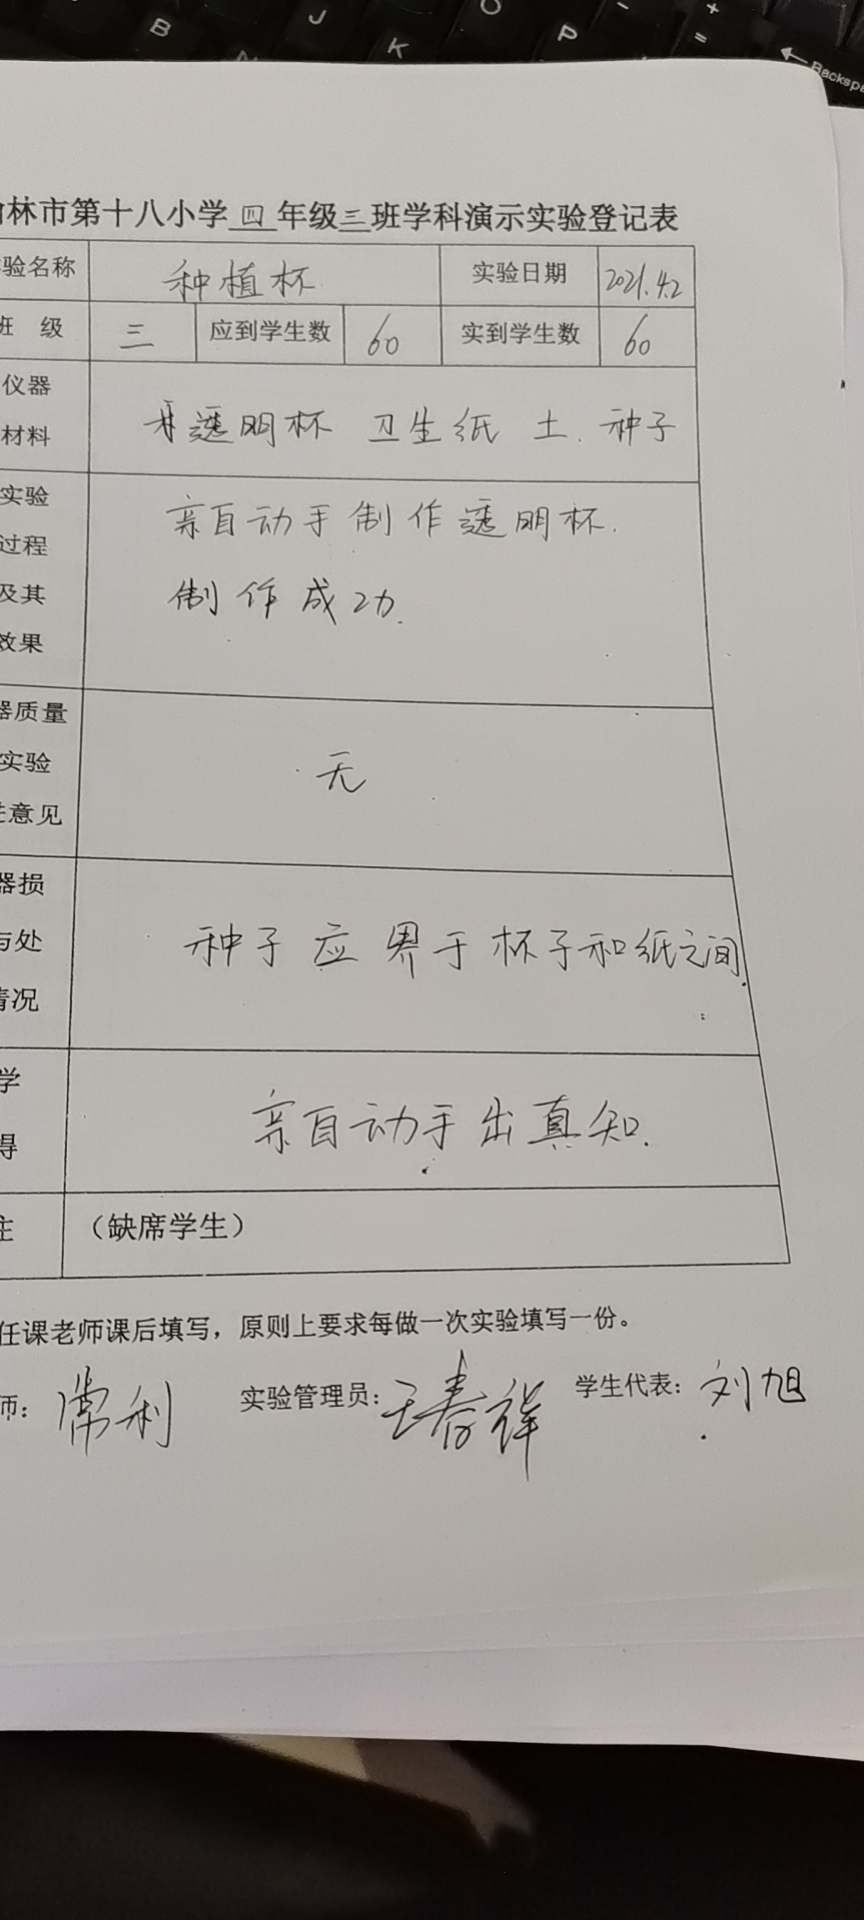 B J K O P - + = ← Backspa
林市第十八小学 四 年级 三 班学科演示实验登记表
验名称 种植杯 实验日期 2021.4.2
班 级 三 应到学生数 60 实到学生数 60
仪器
材料
透明杯 卫生纸 土. 种子
实验
过程
及其
效果
亲自动手制作透明杯.
制作成功.
器质量
实验
意见
无
器损
与处
情况
种子应界于杯子和纸之间.
学
得
亲自动手出真知.
注 （缺席学生）
任课老师课后填写，原则上要求每做一次实验填写一份。
师： 常利 实验管理员： 王春祥 学生代表： 刘旭